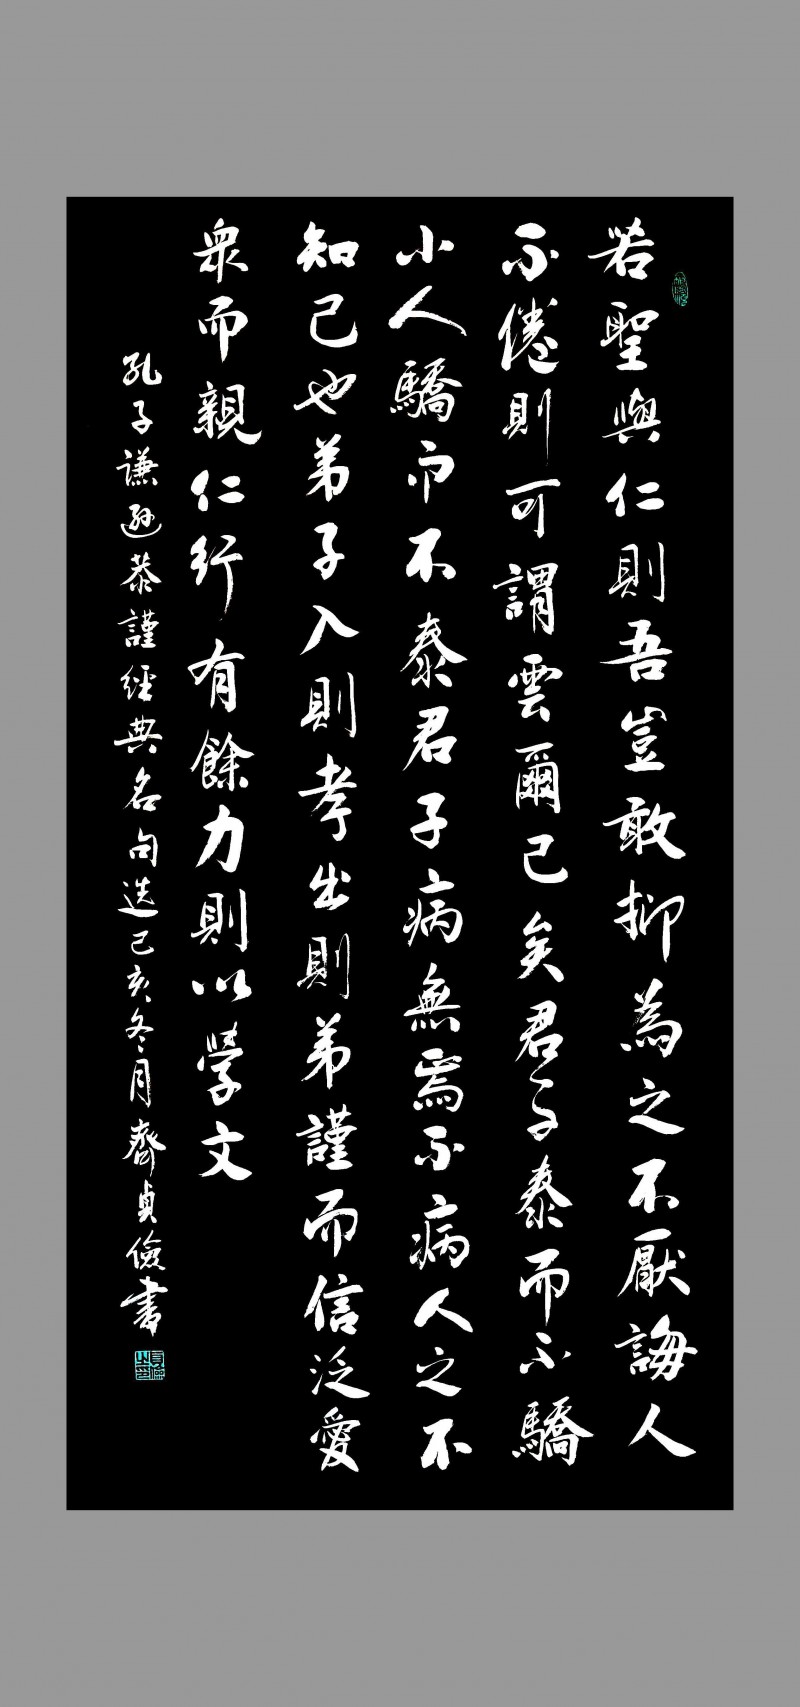 若聖與仁則吾豈敢抑為之不厭誨人
不倦則可謂雲爾已矣君子泰而不驕
小人驕而不泰君子病無焉不病人之不
知己也弟子入則孝出則弟謹而信泛愛
衆而親仁行有餘力則以學文
孔子謙遜恭謹經典名句选己亥冬月齊貞儉書